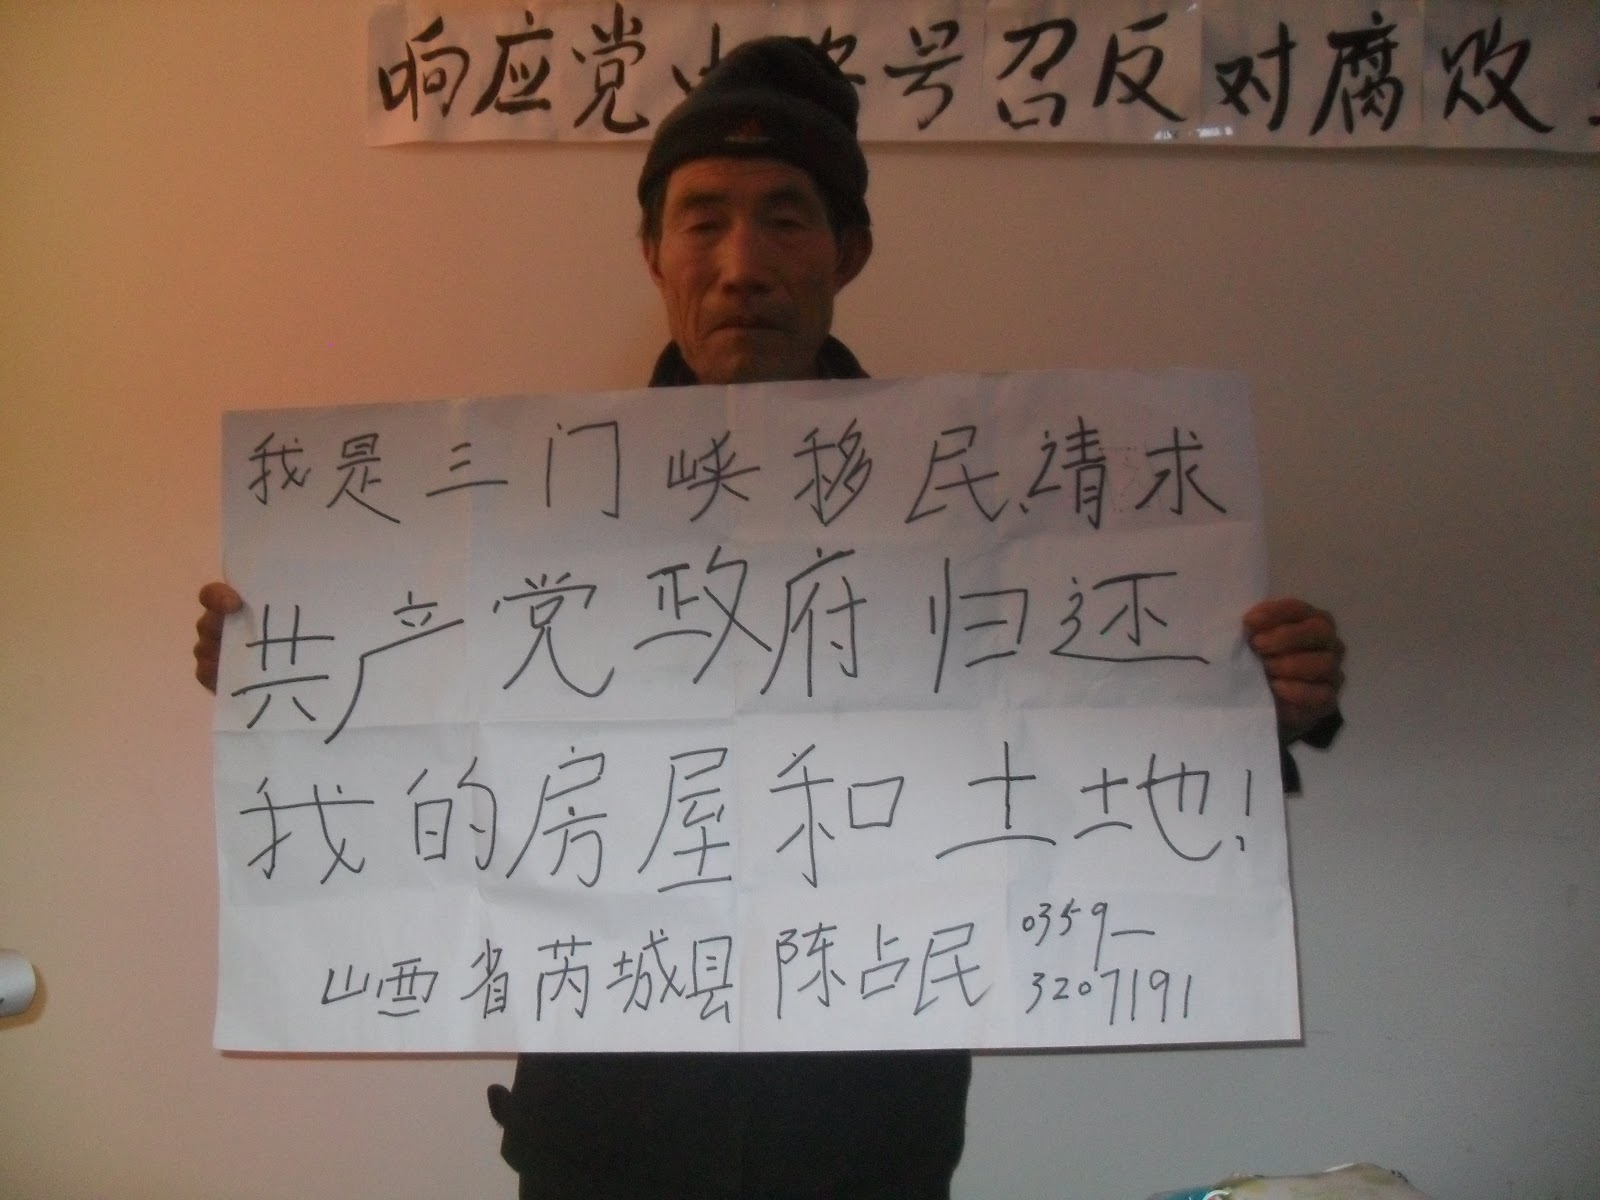 响应党中央号召反对腐败
我是三门峡移民、请求
共产党政府归还
我的房屋和土地!
山西省芮城县 陈占民 0359—
3207191